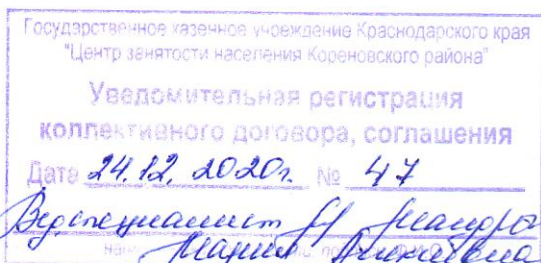 Государственное казенное учреждение Краснодарского края
"Центр занятости населения Кореновского района"
Уведомительная регистрация
коллективного договора, соглашения
Дата 24.12.2020г. № 47
Вед специалист